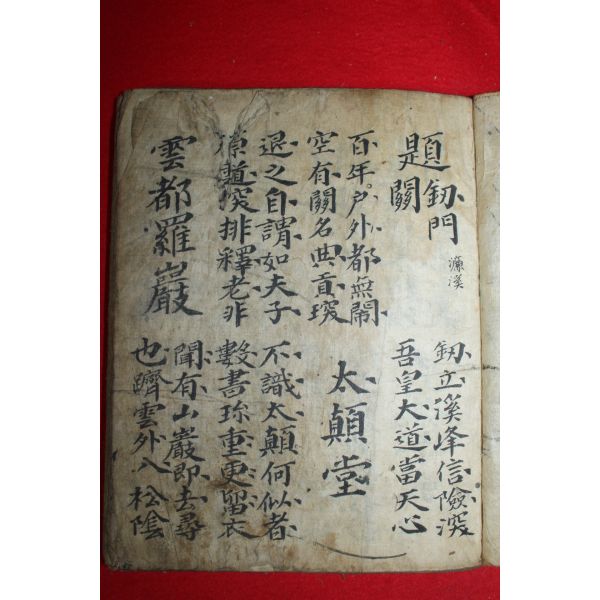 題釰門關
濂溪
釰立溪峰信險深
吾皇大道當天心
百年户外都無鬧
空有關名典貢琛
太顛堂
退之自謂如夫子
原道深排釋老非
不識太顛何似者
數書珎重更留衣
雲都羅巖
聞有山巖即去尋
也躋雲外入松陰